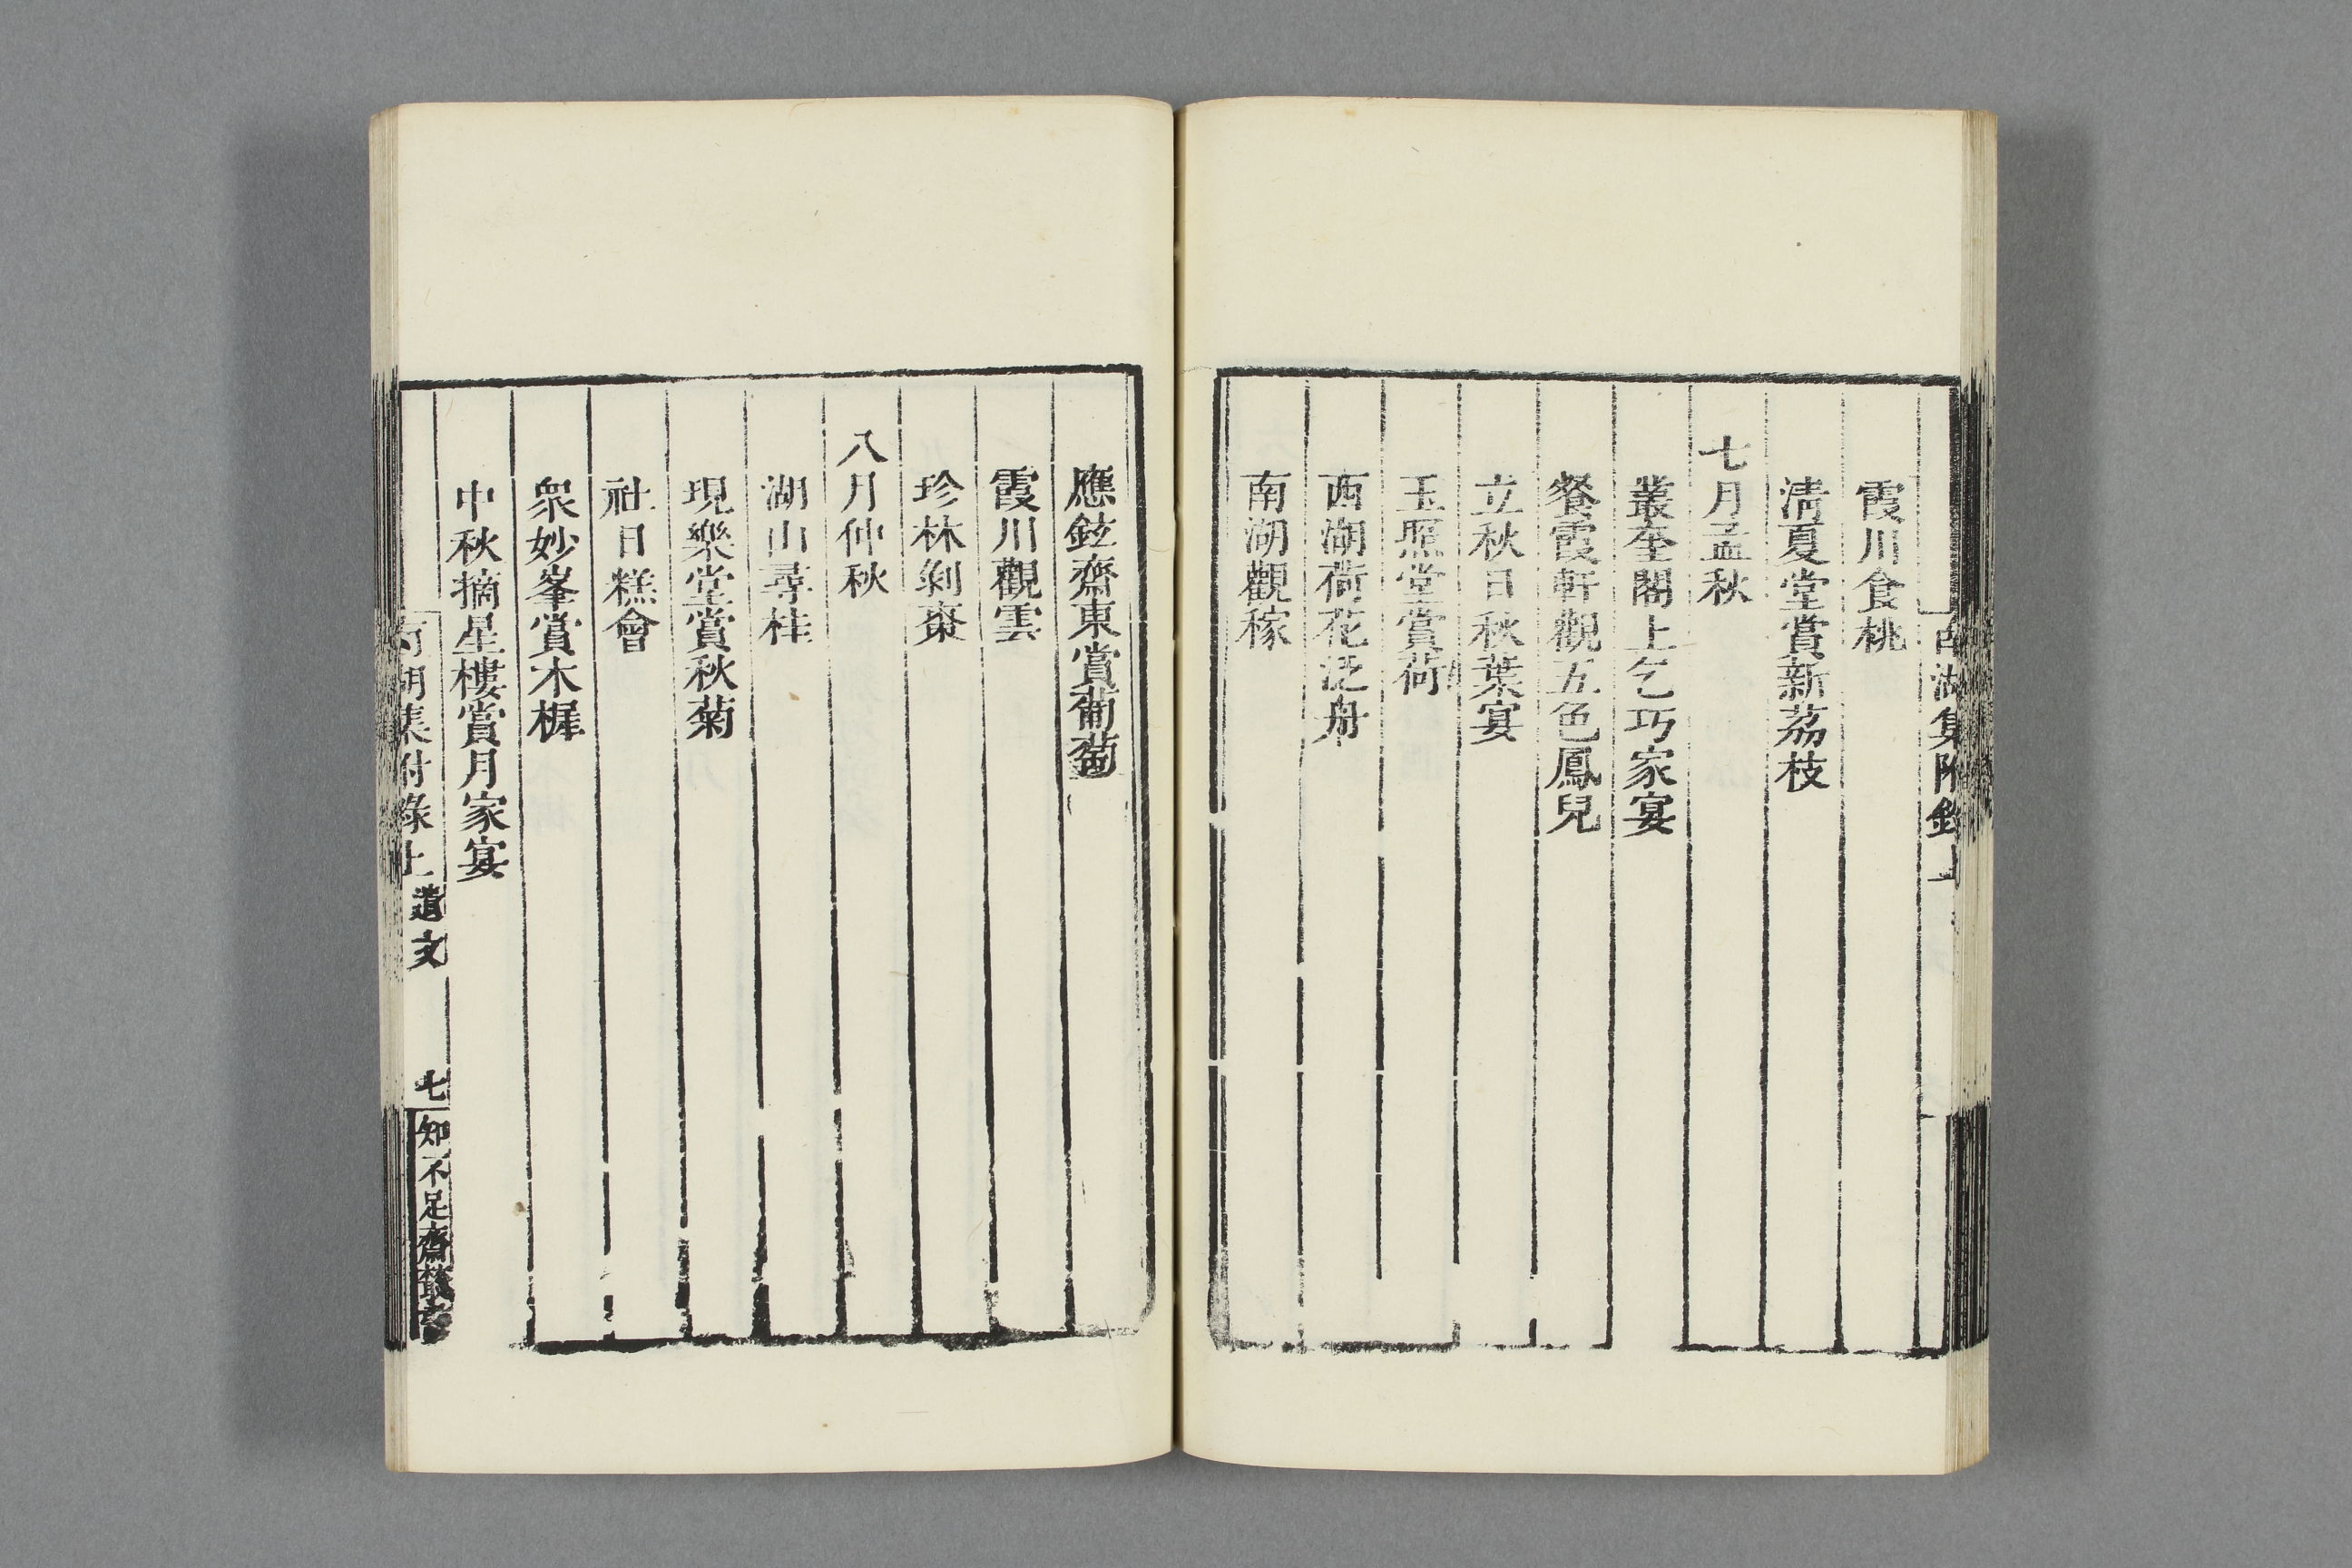 南湖集附錄上
霞川食桃
清夏堂賞新荔枝
七月孟秋
叢奎閣上乞巧家宴
餐霞軒觀五色鳳兒
立秋日秋葉宴
玉照堂賞荷
西湖荷花泛舟
南湖觀稼
應鉉齋東賞葡萄
霞川觀雲
珍林剝棗
八月仲秋
湖山尋桂
現樂堂賞秋菊
社日糕會
衆妙峯賞木樨
中秋摘星樓賞月家宴
南湖集附錄上 遺文 七 知不足齋叢書